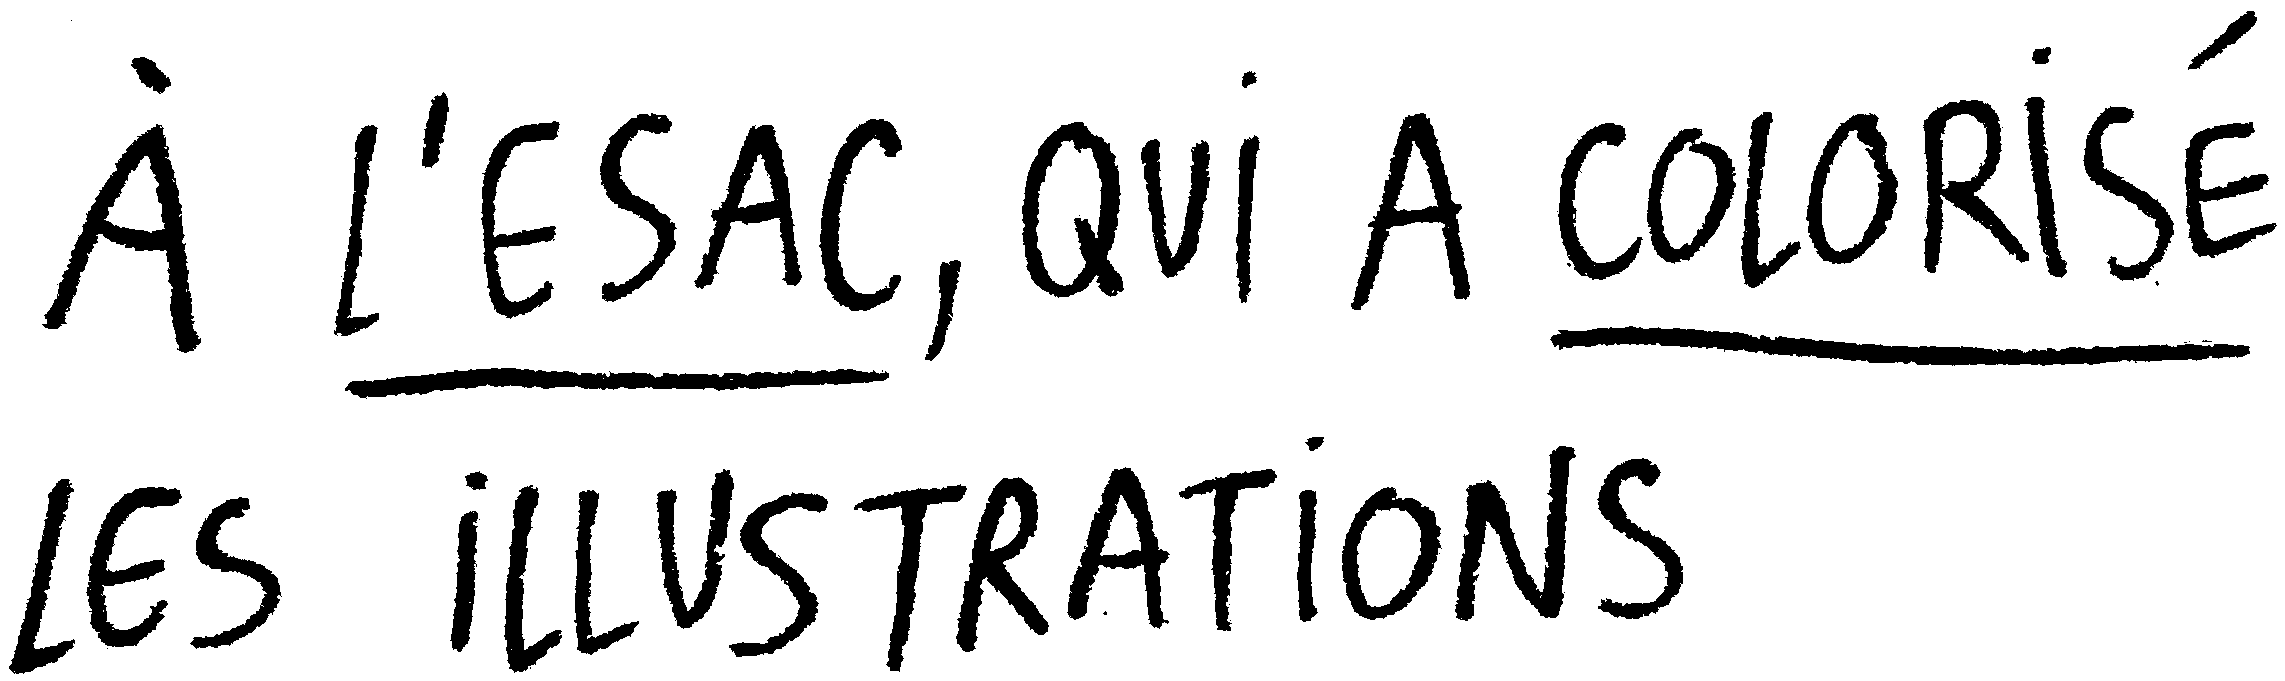 À L'ESAC, QUI A COLORISÉ
LES ILLUSTRATIONS